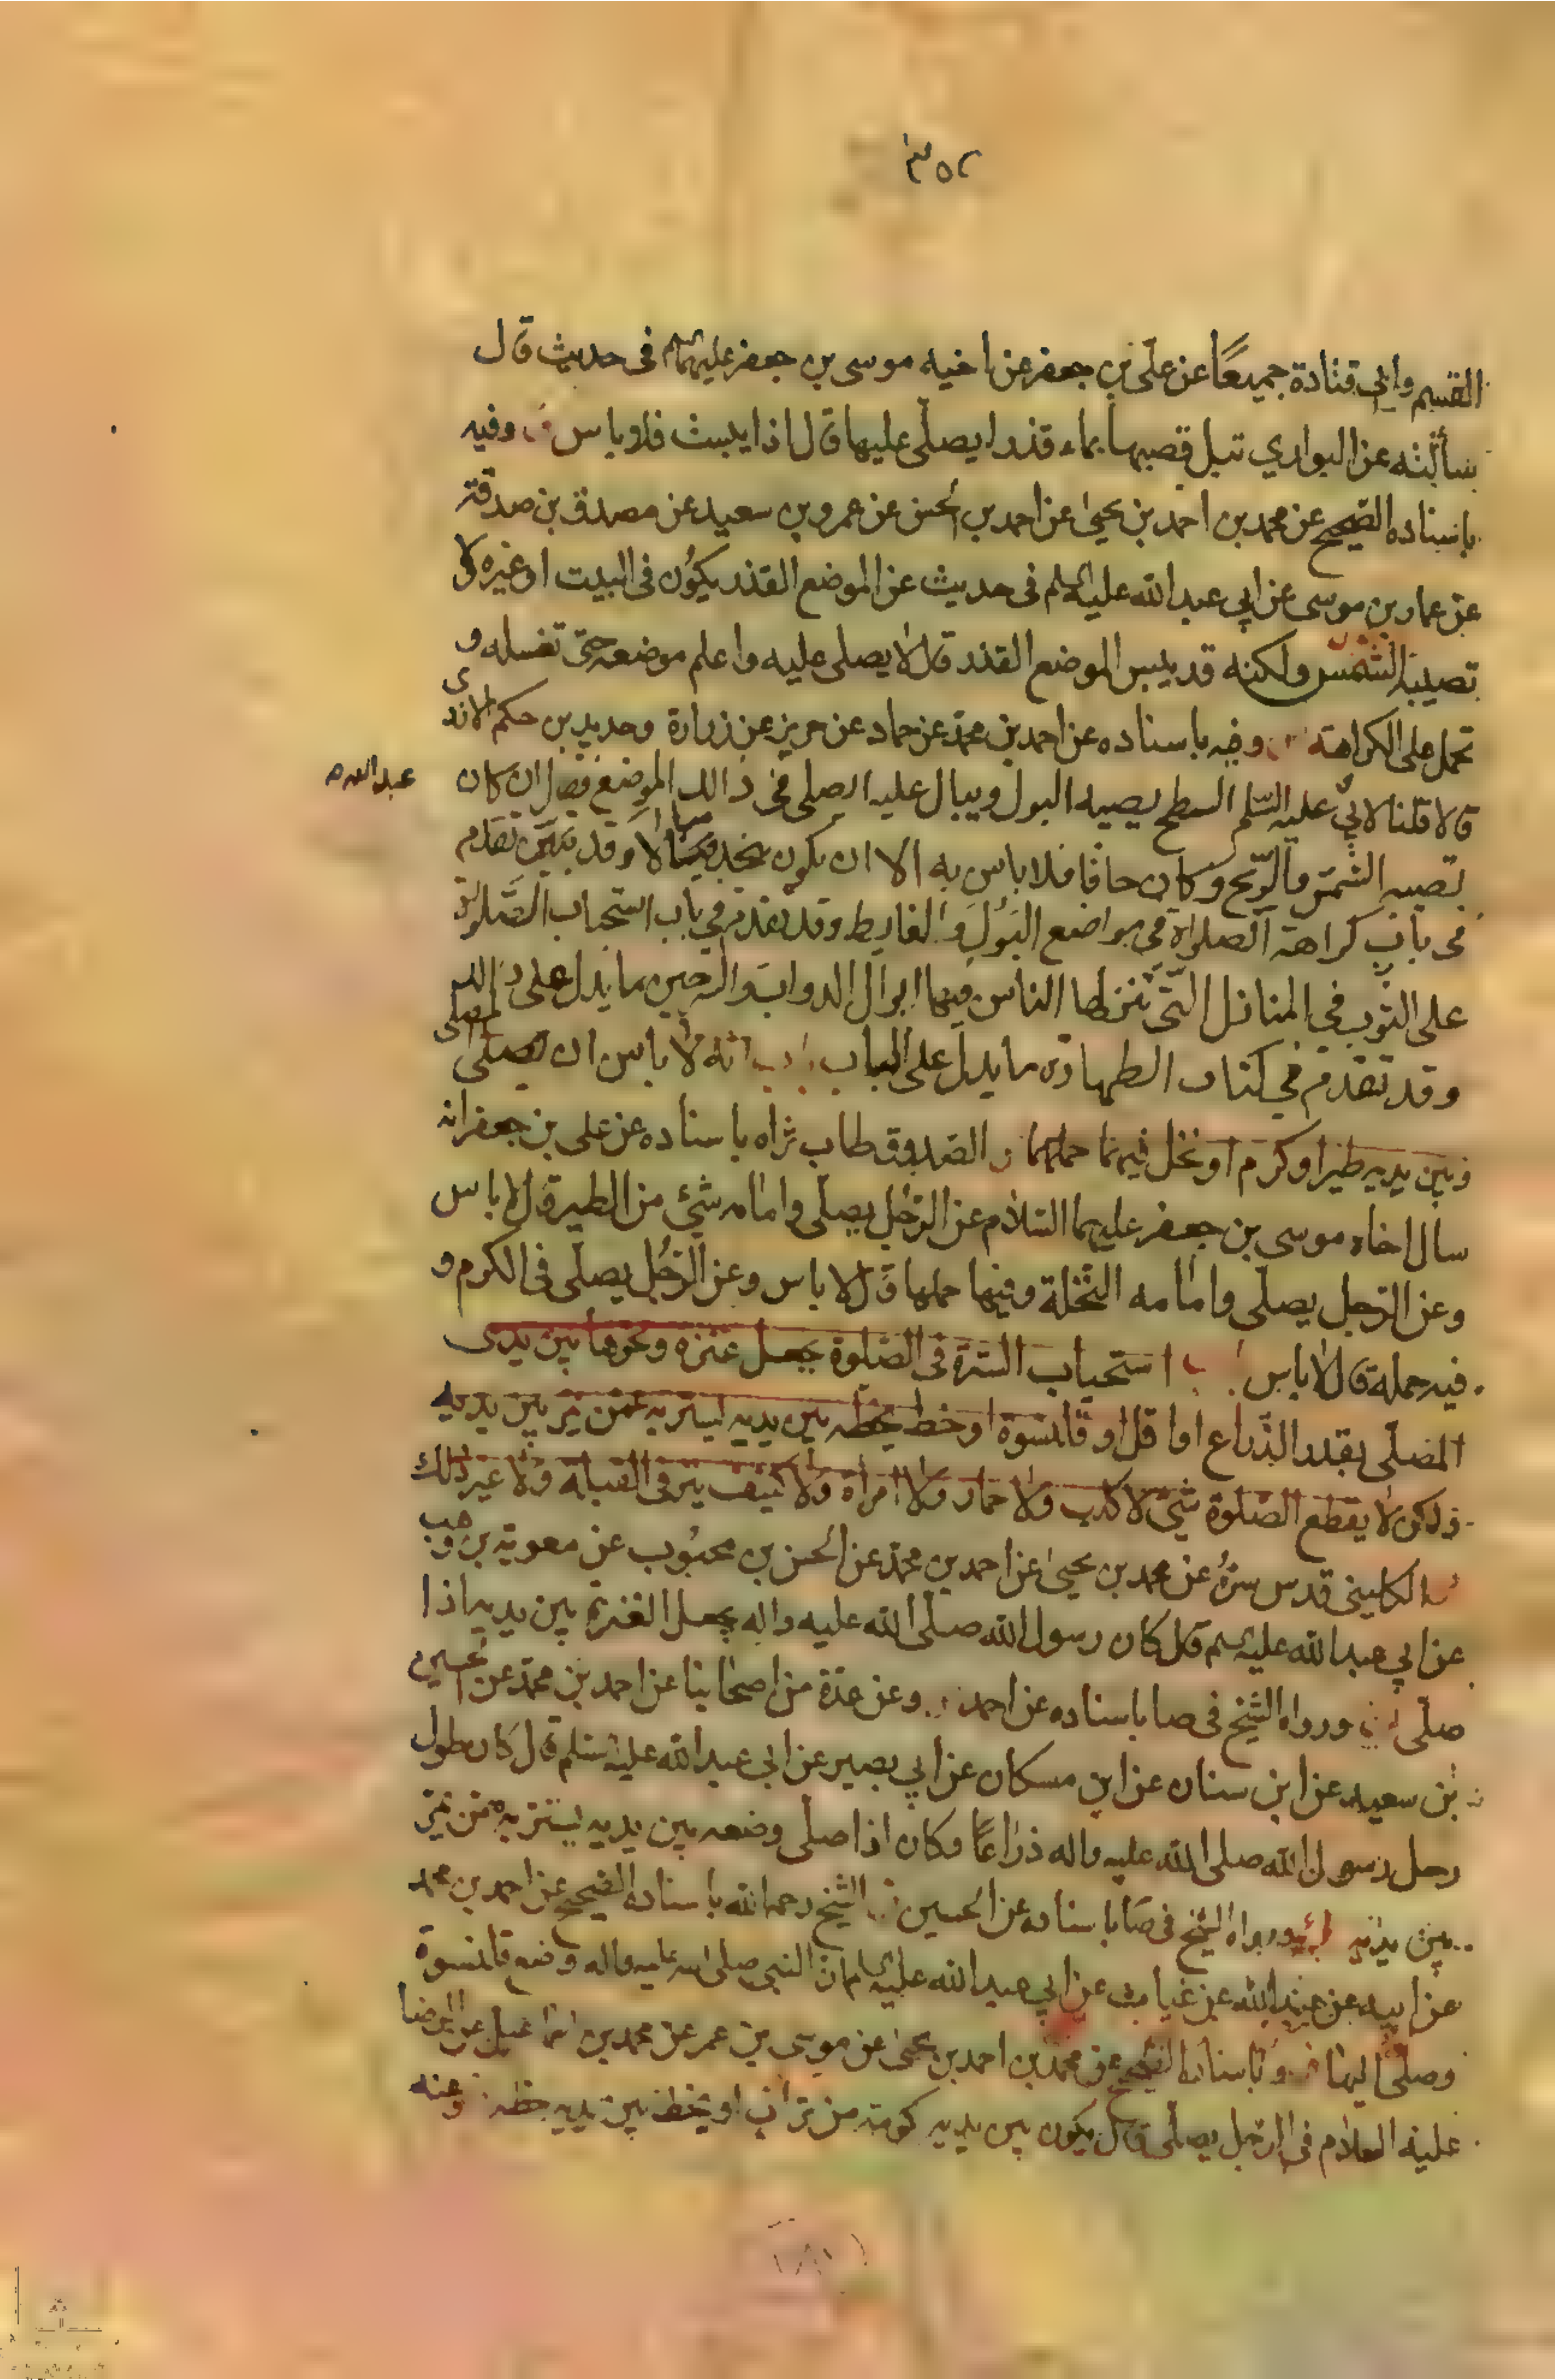 ٣٥٢
القسم وابى قتادة جميعًا عن على بن جعفر عن اخيه موسى بن جعفر عليهما السلم فى حديث قال
سألته عن البوارى تبل قصبها بماء قذر ايصلّى عليها قال اذا يبست فلا باس وفيه
باسناده الصّحيح عن محمد بن احمد بن يحيىٰ عن احمد بن الحسن عن عمرو بن سعيد عن مصدق بن صدقة
عن عمار بن موسى عن ابي عبد الله عليه السلم فى حديث عن الموضع القذر يكوُن فى البيت او غيره لا
تصيبه الشّمس ولكنه قد يبس الموضع القذر قال لا يصلى عليه واعلم موضعه حتى تغسله و
تحمل على الكراهة وفيه باسناده عن احمد بن محمّد عن حماد عن حريز عن زرارة وحديد بن حكم الازدى
قالا قلنا لابي عليه السّلم السطح يصيبه البول ويبال عليه ايصلى فى ذالك الموضع فقال ان كان
عبد الله صح
تصيبه الشّمس والرّيح وكان جافًا فلا باس به الا ان يكون يتخذ مبالا وقد تقدم
فى باب كراهة الصلاة في مواضع البَوُل والغايط وقد تقدم في باب استحباب الصّلوة
على الثوب في المنازل التّى تنزلها الناس فيها ابوال الدواب والسرجين ما يدل على ذالك
وقد تقدم في كتاب الطهارة ما يدل على الباب باب انه لا باس ان يصلى المصلى
وبين يديه طير او كرم او نخل فيهما حملهما الصدوق طاب ثراه باسناده عن على بن جعفر انه
سال اخاه موسى بن جعفر عليهما السّلام عن الرّجل يصلّى وامامه شئ من الطير قال لا باس
وعن الرّجل يصلّى وامامه النّخلة وفيها حملها قال لا باس وعن الرّجُل يصلّى فى الكرم و
فيه حمله قال لا باس باب استحباب السّترة فى الصّلوة بجعل عنزه ونحوها بين يدى
المصلّى بقدر الذّراع او اقل او قلنسوة او خط يخطه بين يديه ليستر به ممن يمر بين يديه
ولكن لا يقطع الصّلوة شئ لا كلب ولا حمار ولا امراة ولا كنيف يرى فى القبلة ولا غير ذلك
الكلينى قدس سرّهُ عن محمد بن يحيىٰ عن احمد بن محمّد عن الحسن بن محبُوب عن معوية بن وهب
عن ابي عبد الله عليه السلم قال كان رسول الله صلّى الله عليه واله يجعل العنزة بين يديه اذا
صلّى ورواه الشّيخ فى صا باسناده عن احمد وعن عدّة من اصحابنا عن احمد بن محمّد عن الحسين
بن سعيد عن ابن سنان عن ابن مسكان عن ابي بصير عن ابي عبد الله عليه السّلم قال كان طول
رحل رسول الله صلى الله عليه واله ذراعًا وكان اذا صلى وضعه بين يديه يستتر به ممّن يمرّ
بين يديه ورواه الشّيخ فى صا باسناده عن الحسين الشّيخ رحمه الله باسناده الصّحيح عن احمد بن محمد
عن ابيه عن عبد الله عن غياث عن ابي عبد الله عليه السلم ان النبي صلى الله عليه واله وضع قلنسوة
وصلّى اليها وباسناده الصّحيح عن محمد بن احمد بن يحيىٰ عن موسى بن عمر عن محمد بن اسمٰعيل عن الرضا
عليه السلام فى الرّجل يصلّى قال يكون بين يديه كومة من تراب او يخط بين يديه بخطه وعنه